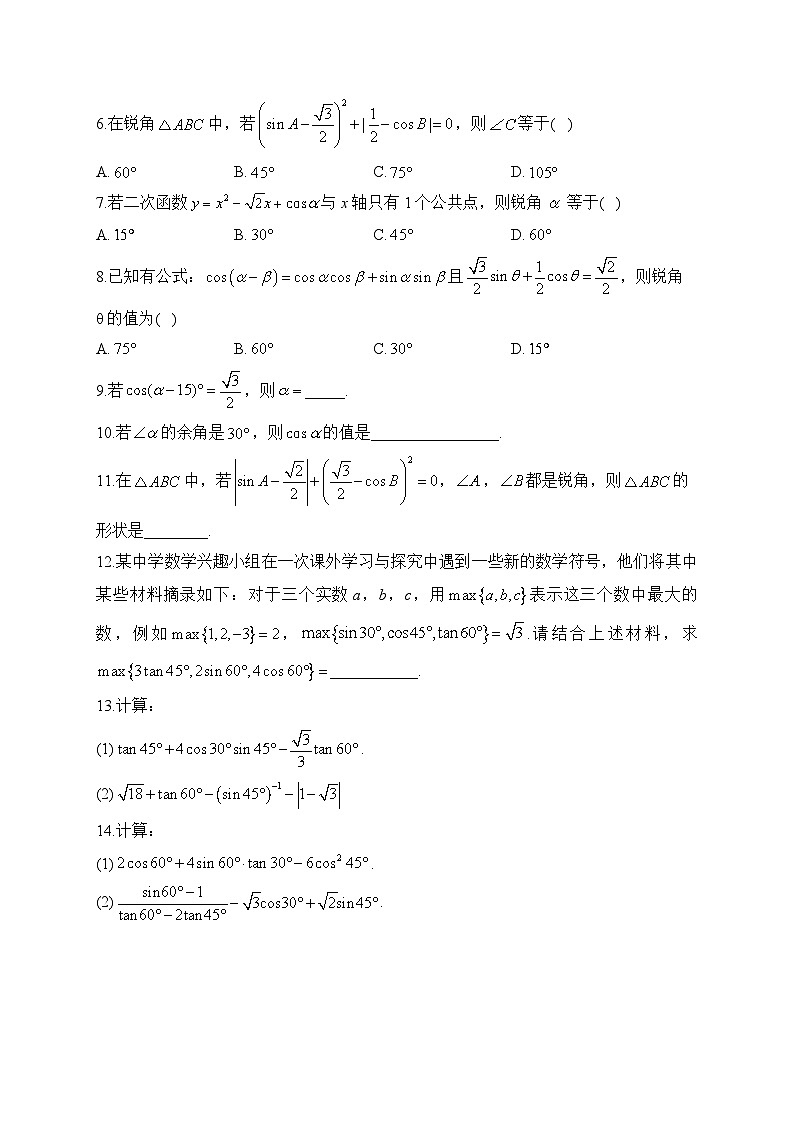 6.在锐角△ABC中，若(sin A−√3/2)²+|1/2−cos B|=0，则∠C等于( )
A. 60° B. 45° C. 75° D. 105°
7.若二次函数y=x²−√2x+cosα与x轴只有1个公共点，则锐角α等于( )
A. 15° B. 30° C. 45° D. 60°
8.已知有公式：cos(α−β)=cosαcosβ+sinαsinβ且√3/2sinθ+1/2cosθ=√2/2，则锐角
θ的值为( )
A. 75° B. 60° C. 30° D. 15°
9.若cos(α−15)°=√3/2，则α=_____.
10.若∠α的余角是30°，则cosα的值是________________.
11.在△ABC中，若|sin A−√2/2|+(√3/2−cos B)²=0，∠A，∠B都是锐角，则△ABC的
形状是________.
12.某中学数学兴趣小组在一次课外学习与探究中遇到一些新的数学符号，他们将其中
某些材料摘录如下：对于三个实数a，b，c，用max{a,b,c}表示这三个数中最大的
数，例如max{1,2,−3}=2，max{sin30°,cos45°,tan60°}=√3.请结合上述材料，求
max{3tan45°,2sin60°,4cos60°}=___________.
13.计算：
(1) tan45°+4cos30°sin45°−√3/3tan60°.
(2) √18+tan60°−(sin45°)⁻¹−|1−√3|
14.计算：
(1) 2cos60°+4sin60°·tan30°−6cos²45°.
(2) (sin60°−1)/(tan60°−2tan45°)−√3cos30°+√2sin45°.